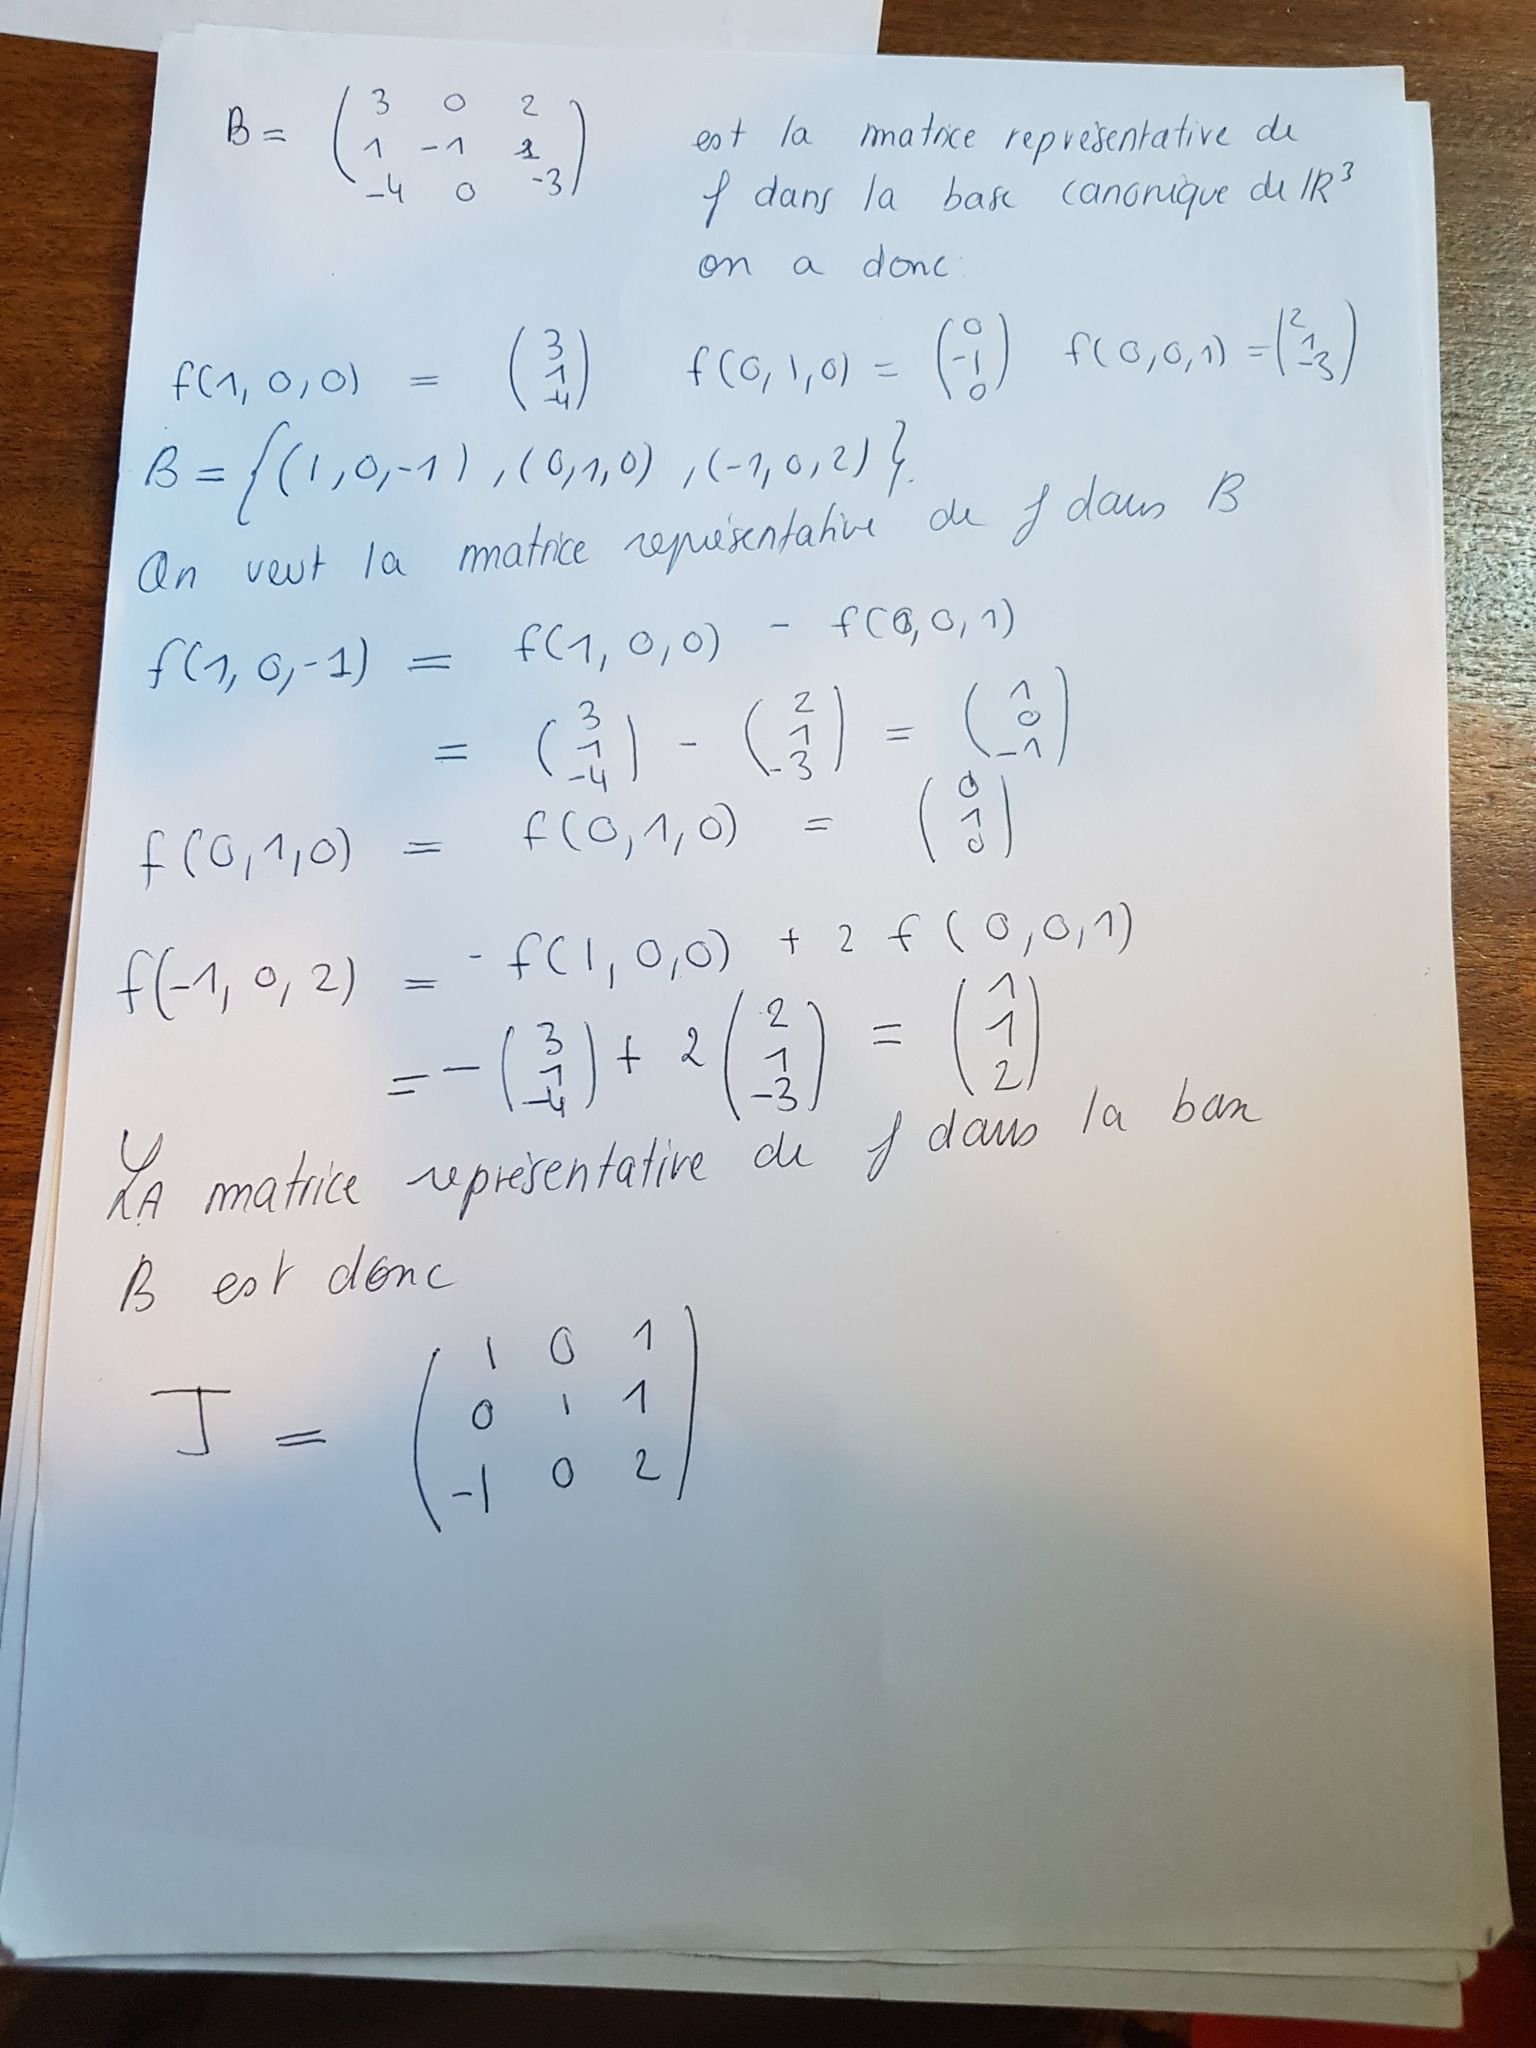 B = ( 3 0 2 est la matrice représentative de
1 -1 1 f dans la base canonique de IR³
-4 0 -3 ) on a donc
f(1, 0, 0) = ( 3 1 -4 ) f(0, 1, 0) = ( 0 -1 0 ) f(0, 0, 1) = ( 2 1 -3 )
B = { (1, 0, -1), (0, 1, 0), (-1, 0, 2) }.
On veut la matrice représentative de f dans B
f(1, 0, -1) = f(1, 0, 0) - f(0, 0, 1)
= ( 3 1 -4 ) - ( 2 1 -3 ) = ( 1 0 -1 )
f(0, 1, 0) = f(0, 1, 0) = ( 0 1 0 )
f(-1, 0, 2) = - f(1, 0, 0) + 2 f(0, 0, 1)
= - ( 3 1 -4 ) + 2 ( 2 1 -3 ) = ( 1 1 2 )
LA matrice représentative de f dans la base
B est donc
J = ( 1 0 1
0 1 1
-1 0 2 )